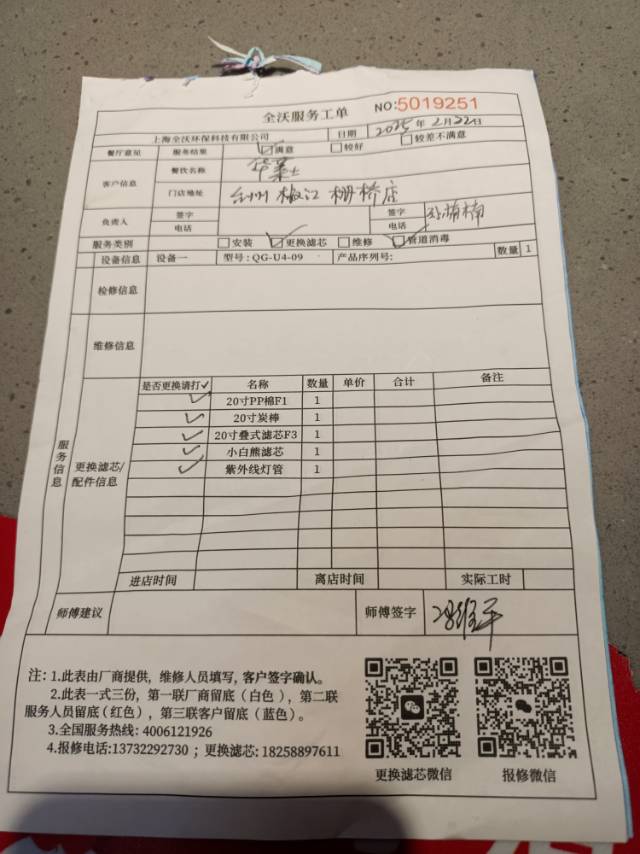 全沃服务工单 NO:5019251
上海全沃环保科技有限公司 日期 2025年2月22日
餐厅意见 服务结果 ☑满意 □较好 □较差不满意
客户信息 餐饮名称 华莱士
门店地址 台州椒江栅桥店
负责人 签字 签字
电话 电话
服务类别 □安装 ☑更换滤芯 □维修 ☑管道消毒
设备信息 设备一 型号:QG-U4-09 产品序列号: 数量 1
检修信息
维修信息
服务信息
更换滤芯/配件信息
是否更换请打✓ 名称 数量 单价 合计 备注
✓ 20寸PP棉F1 1
✓ 20寸炭棒 1
✓ 20寸叠式滤芯F3 1
✓ 小白熊滤芯 1
✓ 紫外线灯管 1
进店时间 离店时间 实际工时
师傅建议 师傅签字
注:1.此表由厂商提供,维修人员填写,客户签字确认。
2.此表一式三份,第一联厂商留底(白色),第二联
服务人员留底(红色),第三联客户留底(蓝色)。
3.全国服务热线:4006121926
4.报修电话:13732292730;更换滤芯:18258897611
更换滤芯微信 报修微信